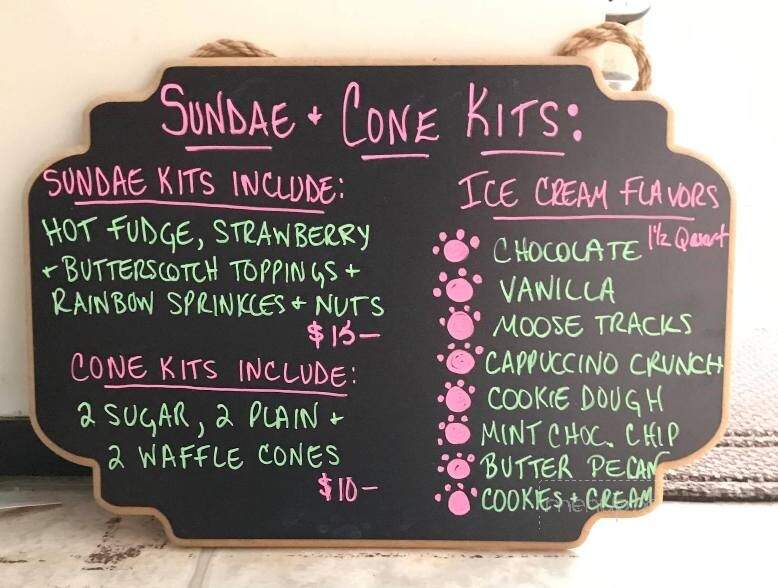 SUNDAE + CONE KITS:
SUNDAE KITS INCLUDE:
HOT FUDGE, STRAWBERRY
+ BUTTERSCOTCH TOPPINGS +
RAINBOW SPRINKLES + NUTS
$15-
CONE KITS INCLUDE:
2 SUGAR, 2 PLAIN +
2 WAFFLE CONES
$10-
ICE CREAM FLAVORS
1 1/2 Quart
CHOCOLATE
VANILLA
MOOSE TRACKS
CAPPUCCINO CRUNCH
COOKIE DOUGH
MINT CHOC. CHIP
BUTTER PECAN
COOKIES + CREAM